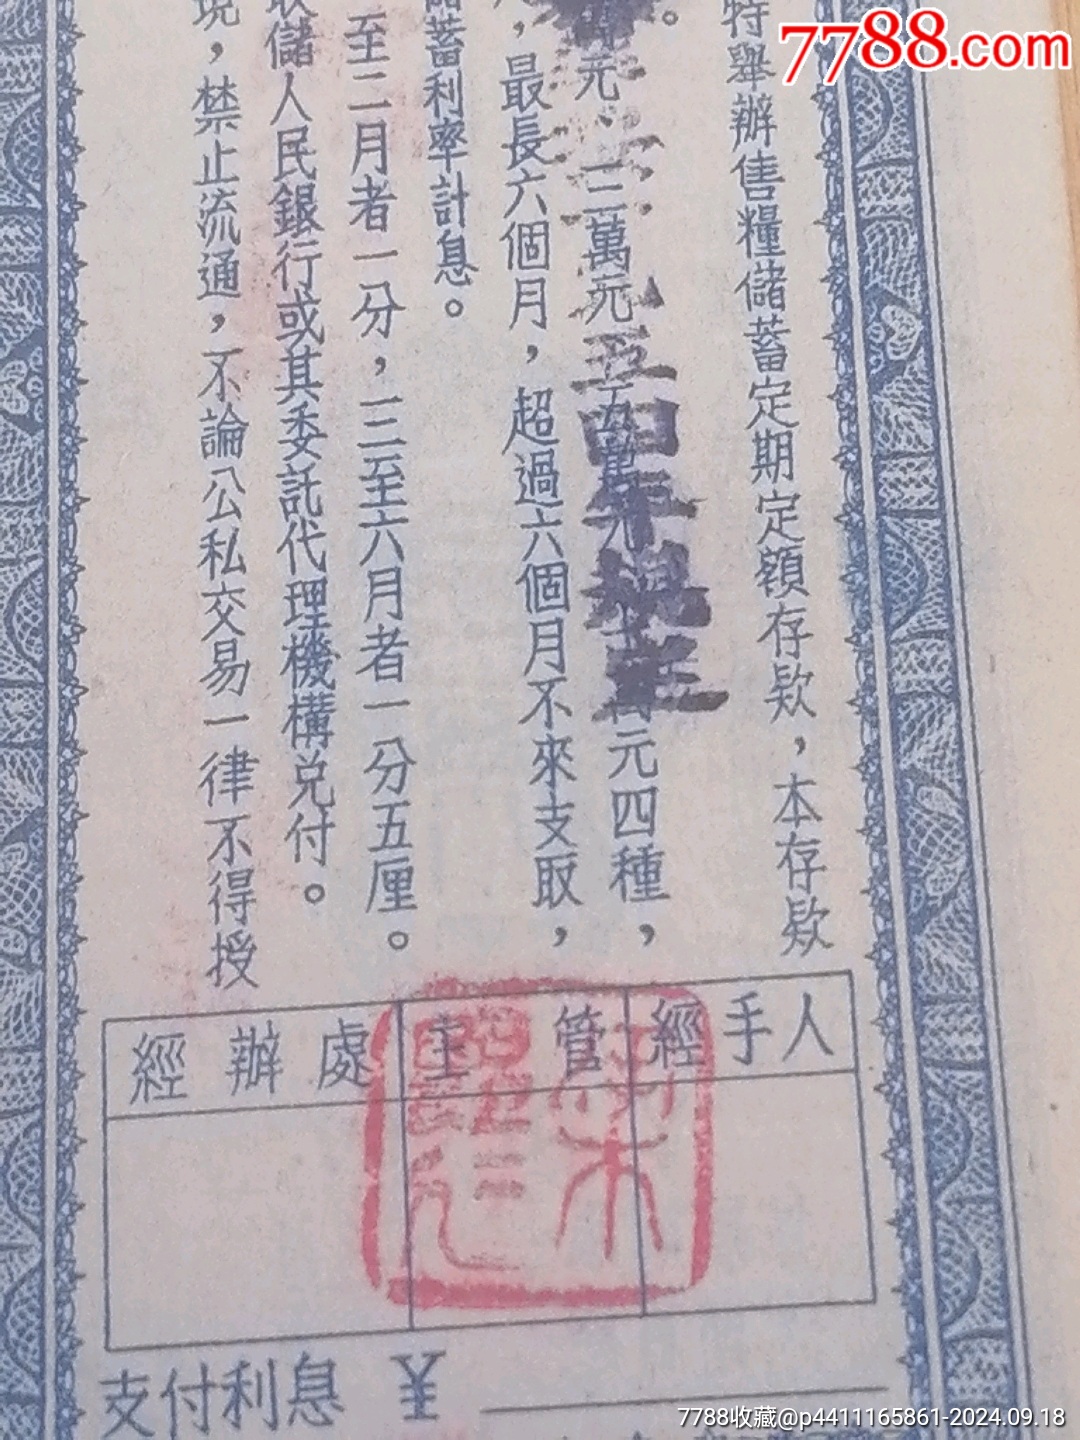 7788.com
特舉辦售糧儲蓄定期定額存欵，本存欵
。
萬元、二萬元、五萬元、十萬元四種，
，最長六個月，超過六個月不來支取，
儲蓄利率計息。
至二月者一分，三至六月者一分五厘。
取儲人民銀行或其委託代理機構兑付。
現，禁止流通，不論公私交易一律不得授
五四年
經辦處
主管
經手人
支付利息 ¥
7788收藏@p4411165861-2024.09.18